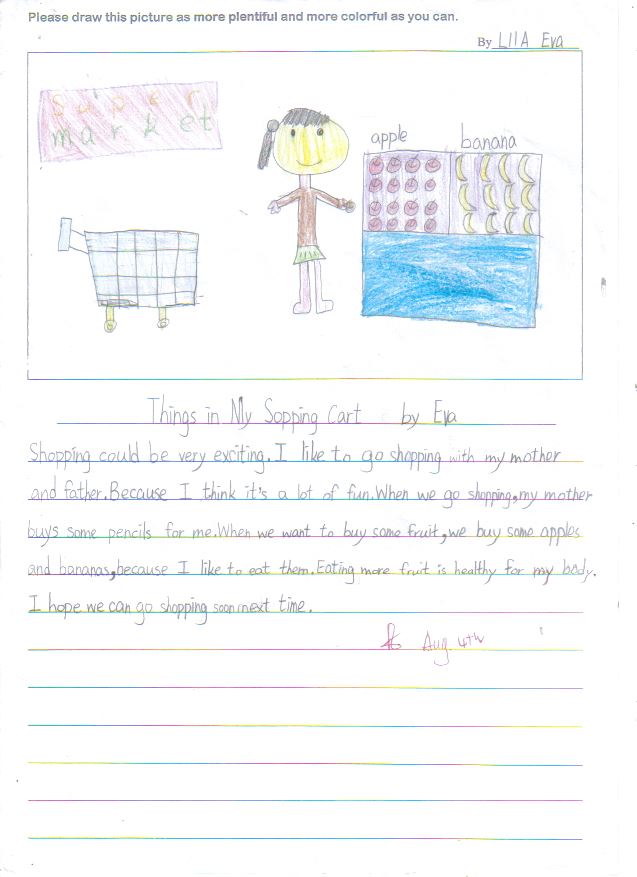 Please draw this picture as more plentiful and more colorful as you can.
By LIlA Eva
Super
market
apple banana
Things in My Sopping Cart by Eva
Shopping could be very exciting. I like to go shopping with my mother
and father. Because I think it's a lot of fun. When we go shopping, my mother
buys some pencils for me. When we want to buy some fruit, we buy some apples
and bananas, because I like to eat them. Eating more fruit is healthy for my body.
I hope we can go shopping soon next time.
Aug 4th